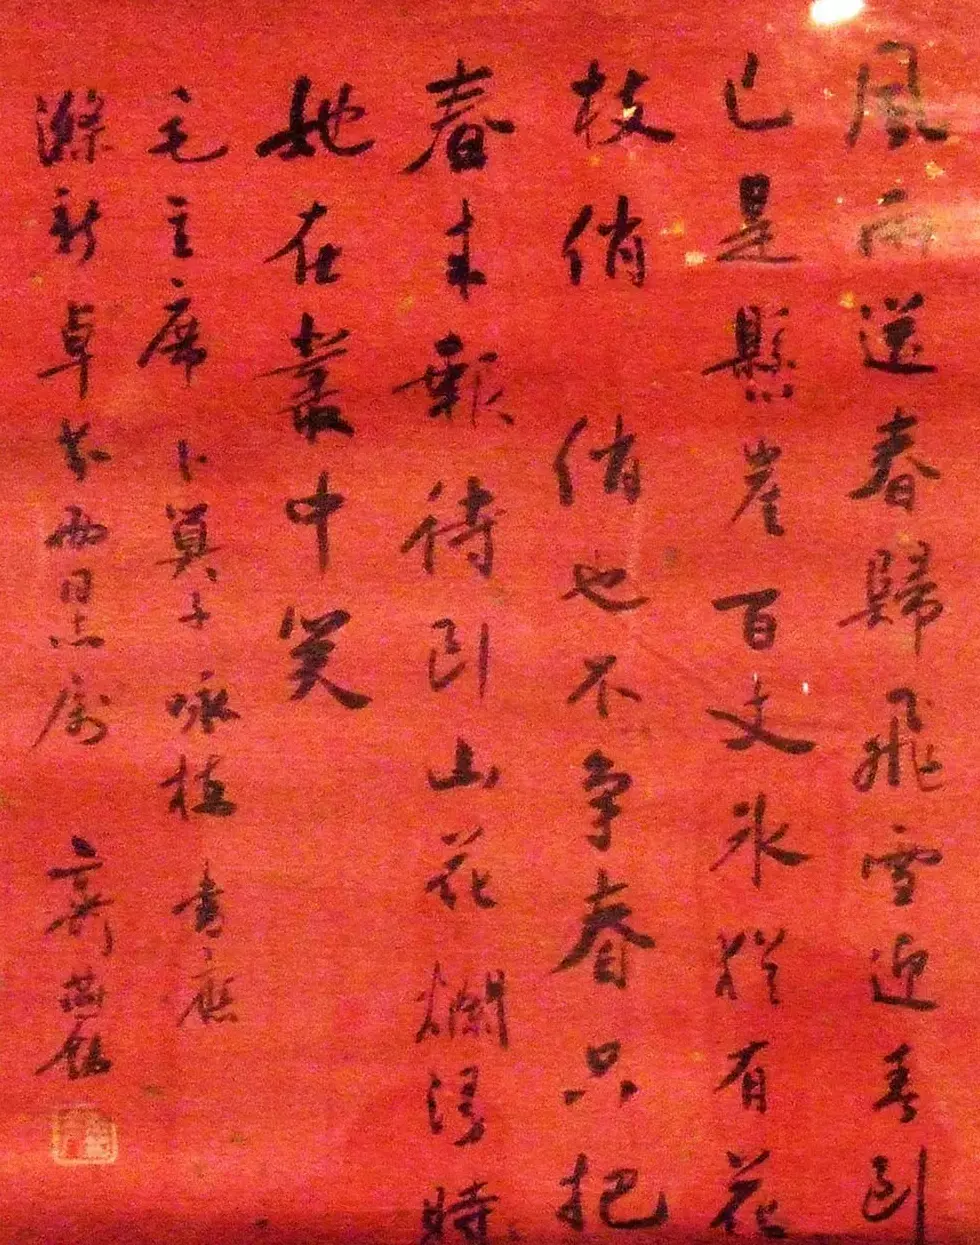 風雨送春歸飛雪迎春到
已是懸崖百丈冰猶有花
枝俏 俏也不争春只把
春来報待到山花爛漫時
她在叢中笑
毛主席卜算子咏梅 書應
滌新卓芬两同志属